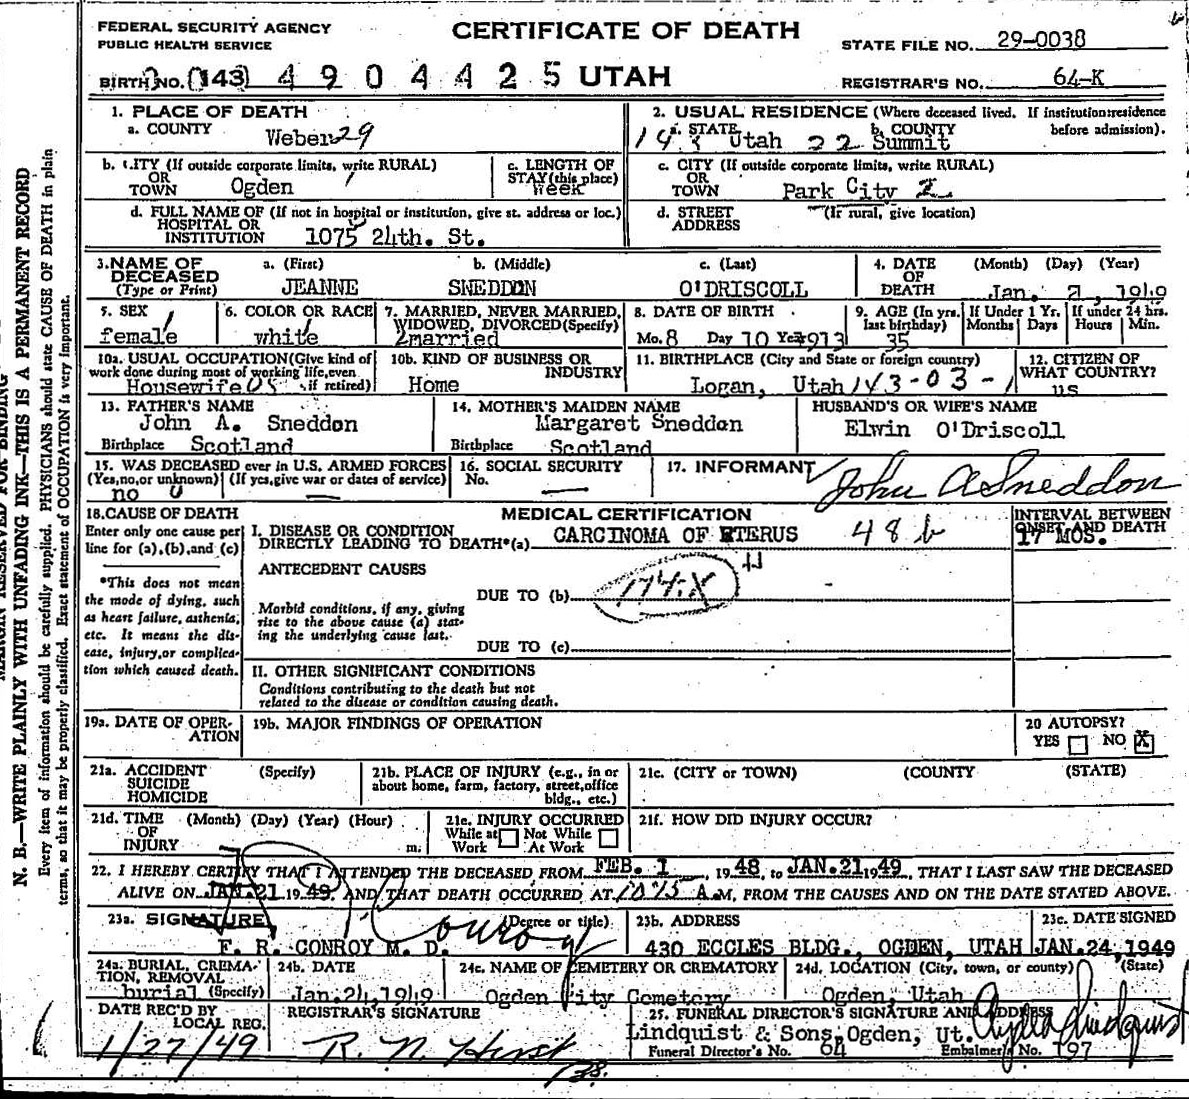 FEDERAL SECURITY AGENCY
PUBLIC HEALTH SERVICE
CERTIFICATE OF DEATH
STATE FILE NO. 29-0038
BIRTH NO. (143) 4904425 UTAH
REGISTRAR'S NO. 64-K
1. PLACE OF DEATH
a. COUNTY Weber 29
2. USUAL RESIDENCE (Where deceased lived. If institution:residence before admission).
143 a. STATE Utah 22 b. COUNTY Summit
b. CITY (If outside corporate limits, write RURAL) OR TOWN Ogden 1
c. LENGTH OF STAY (this place) week
c. CITY (If outside corporate limits, write RURAL) OR TOWN Park City 2
d. FULL NAME OF (If not in hospital or institution, give st. address or loc.) HOSPITAL OR INSTITUTION 1075 24th. St.
d. STREET ADDRESS (If rural, give location)
3. NAME OF DECEASED (Type or Print)
a. (First) JEANNE
b. (Middle) SNEDDON
c. (Last) O'DRISCOLL
4. DATE OF DEATH (Month) (Day) (Year) Jan. 21, 1949
5. SEX female
6. COLOR OR RACE white
7. MARRIED, NEVER MARRIED, WIDOWED, DIVORCED (Specify) 2married
8. DATE OF BIRTH Mo. 8 Day 10 Yr. 1913
9. AGE (In yrs. last birthday) 35
If Under 1 Yr. Months Days
If under 24 hrs. Hours Min.
10a. USUAL OCCUPATION (Give kind of work done during most of working life, even if retired) Housewife
10b. KIND OF BUSINESS OR INDUSTRY Home
11. BIRTHPLACE (City and State or foreign country) Logan, Utah 143-03-1
12. CITIZEN OF WHAT COUNTRY? us
13. FATHER'S NAME John A. Sneddon
Birthplace Scotland
14. MOTHER'S MAIDEN NAME Margaret Sneddon
Birthplace Scotland
HUSBAND'S OR WIFE'S NAME
Elwin O'Driscoll
15. WAS DECEASED ever in U.S. ARMED FORCES (Yes, no, or unknown) (If yes, give war or dates of service) no 0 —
16. SOCIAL SECURITY No. —
17. INFORMANT John A Sneddon
18. CAUSE OF DEATH
Enter only one cause per line for (a), (b), and (c)
*This does not mean the mode of dying, such as heart failure, asthenia, etc. It means the disease, injury, or complication which caused death.
MEDICAL CERTIFICATION
I. DISEASE OR CONDITION DIRECTLY LEADING TO DEATH*(a) CARCINOMA OF UTERUS 48 b
INTERVAL BETWEEN ONSET AND DEATH 17 MOS.
ANTECEDENT CAUSES
Morbid conditions, if any, giving rise to the above cause (a) stating the underlying cause last.
DUE TO (b) 174.X
DUE TO (c)
II. OTHER SIGNIFICANT CONDITIONS
Conditions contributing to the death but not related to the disease or condition causing death.
19a. DATE OF OPERATION
19b. MAJOR FINDINGS OF OPERATION
20 AUTOPSY? YES NO X
21a. ACCIDENT SUICIDE HOMICIDE (Specify)
21b. PLACE OF INJURY (e.g., in or about home, farm, factory, street, office bldg., etc.)
21c. (CITY or TOWN) (COUNTY) (STATE)
21d. TIME OF INJURY (Month) (Day) (Year) (Hour) m.
21e. INJURY OCCURRED While at Work Not While At Work
21f. HOW DID INJURY OCCUR?
22. I HEREBY CERTIFY THAT I ATTENDED THE DECEASED FROM FEB. 1, 1948, to JAN. 21 1949, THAT I LAST SAW THE DECEASED
ALIVE ON JAN. 21 1949, AND THAT DEATH OCCURRED AT A.M, FROM THE CAUSES AND ON THE DATE STATED ABOVE.
23a. SIGNATURE (Degree or title) F. R. CONROY M. D.
23b. ADDRESS 430 ECCLES BLDG., OGDEN, UTAH
23c. DATE SIGNED JAN. 24, 1949
24a. BURIAL, CREMATION, REMOVAL (Specify) burial
24b. DATE Jan. 24, 1949
24c. NAME OF CEMETERY OR CREMATORY Ogden City Cemetery
24d. LOCATION (City, town, or county) (State) Ogden, Utah
DATE REC'D BY LOCAL REG. 1/27/49
REGISTRAR'S SIGNATURE
25. FUNERAL DIRECTOR'S SIGNATURE AND ADDRESS
Lindquist & Sons, Ogden, Ut.
Funeral Director's No. 64 Embalmer's No. 197
138.
MARGIN RESERVED FOR BINDING
N. B.—WRITE PLAINLY WITH UNFADING INK—THIS IS A PERMANENT RECORD
Every item of information should be carefully supplied. PHYSICIANS should state CAUSE OF DEATH in plain
terms, so that it may be properly classified. Exact statement of OCCUPATION is very important.